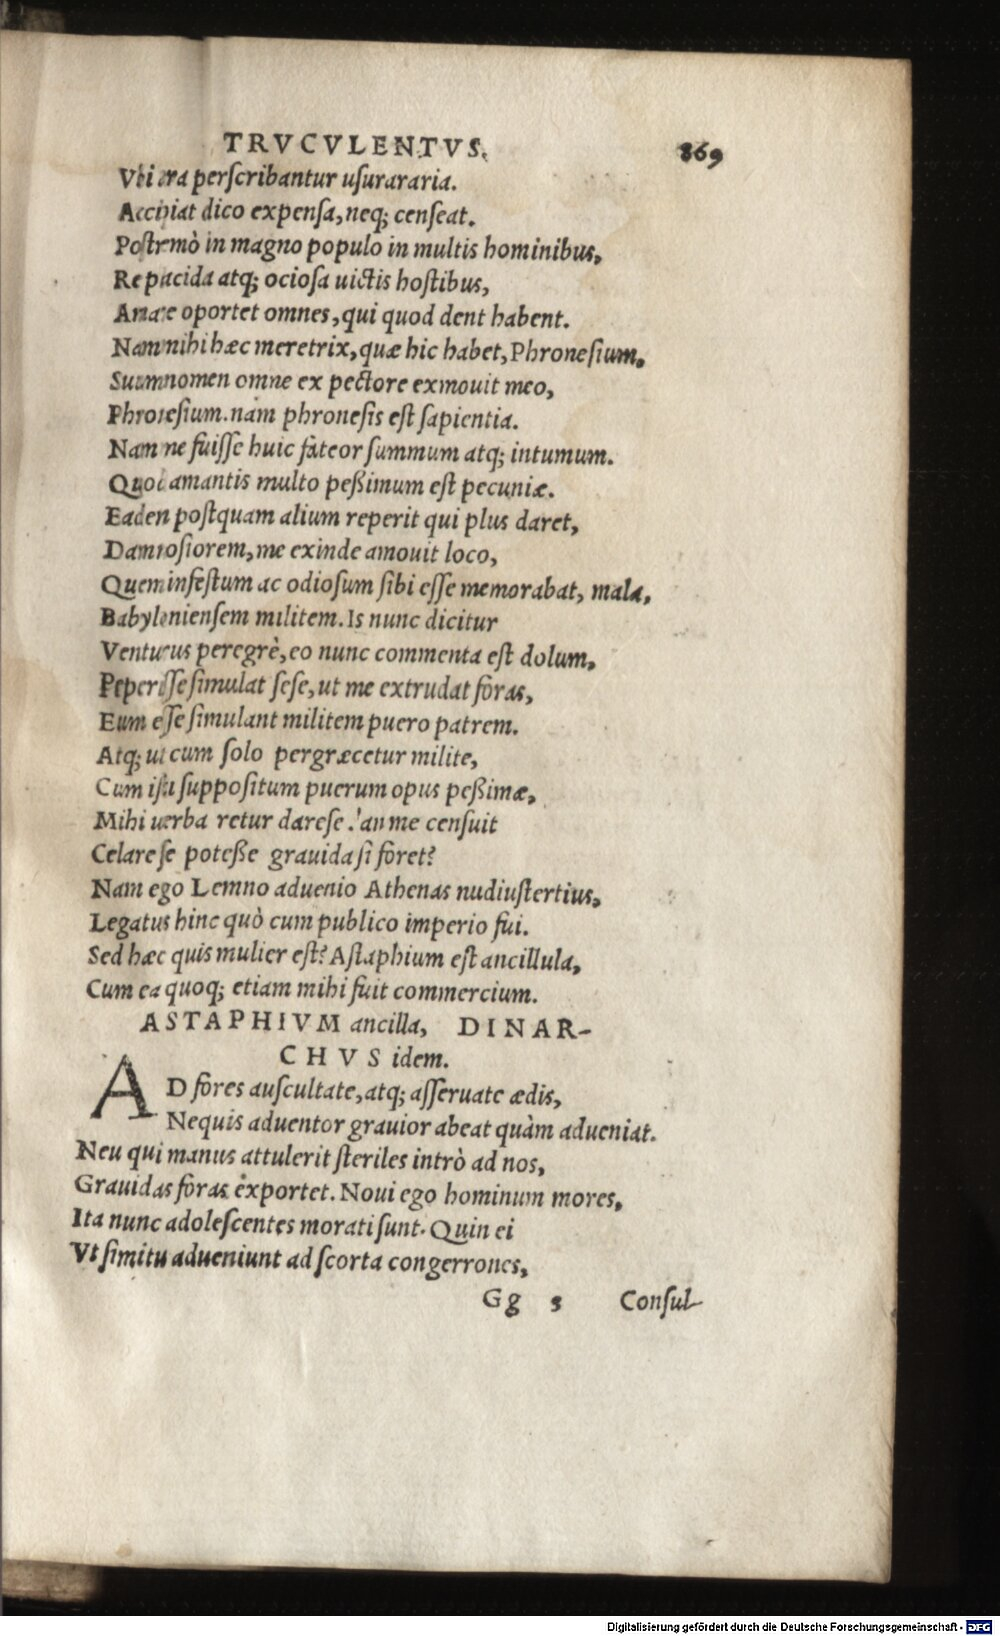 TRVCVLENTVS. 869
Vbi æra perscribantur usuraria.
Accipiat dico expensa, neq; censeat.
Postremò in magno populo in multis hominibus,
Re placida atq; ociosa uictis hostibus,
Amare oportet omnes, qui quod dent habent.
Nam mihi hæc meretrix, quæ hic habet, Phronesium,
Suum nomen omne ex pectore exmouit meo,
Phronesium. nam phronesis est sapientia.
Nam me fuisse huic fateor summum atq; intumum.
Quod amantis multo peßimum est pecuniæ.
Eadem postquam alium reperit qui plus daret,
Damnosiorem, me exinde amouit loco,
Quem infestum ac odiosum sibi esse memorabat, mala,
Babyloniensem militem. Is nunc dicitur
Venturus peregrè, eo nunc commenta est dolum,
Peperisse simulat sese, ut me extrudat foras,
Eum esse simulant militem puero patrem.
Atq; ut cum solo pergræcetur milite,
Cum isti suppositum puerum opus peßimæ,
Mihi uerba retur dare se. an me censuit
Celare se poteße grauida si foret?
Nam ego Lemno aduenio Athenas nudiustertius,
Legatus hinc quò cum publico imperio fui.
Sed hæc quis mulier est? Astaphium est ancillula,
Cum ea quoq; etiam mihi fuit commercium.
ASTAPHIVM ancilla, DINAR-
CHVS idem.
AD fores auscultate, atq; asseruate ædis,
Nequis aduentor grauior abeat quàm adueniat.
Neu qui manus attulerit steriles intrò ad nos,
Grauidas foras exportet. Noui ego hominum mores,
Ita nunc adolescentes morati sunt. Quin ei
Vt simitu adueniunt ad scorta congerrones,
Gg 3 Consul-
Digitalisierung gefördert durch die Deutsche Forschungsgemeinschaft - DFG